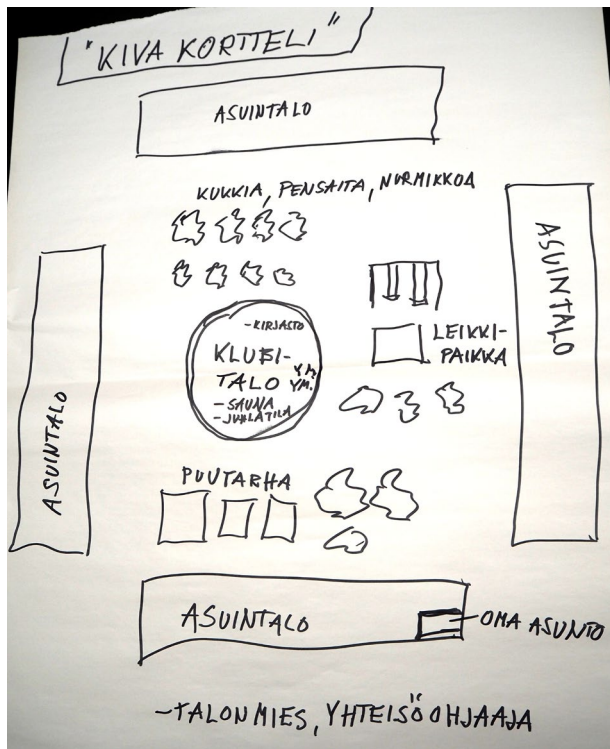 "KIVA KORTTELI"
ASUINTALO
KUKKIA, PENSAITA, NURMIKKOA
ASUINTALO
LEIKKI-
PAIKKA
-KIRJASTO
KLUBI-
TALO YM. YM.
-SAUNA
-JUHLATILA
ASUINTALO
PUUTARHA
ASUINTALO
OMA ASUNTO
-TALONMIES, YHTEISÖOHJAAJA